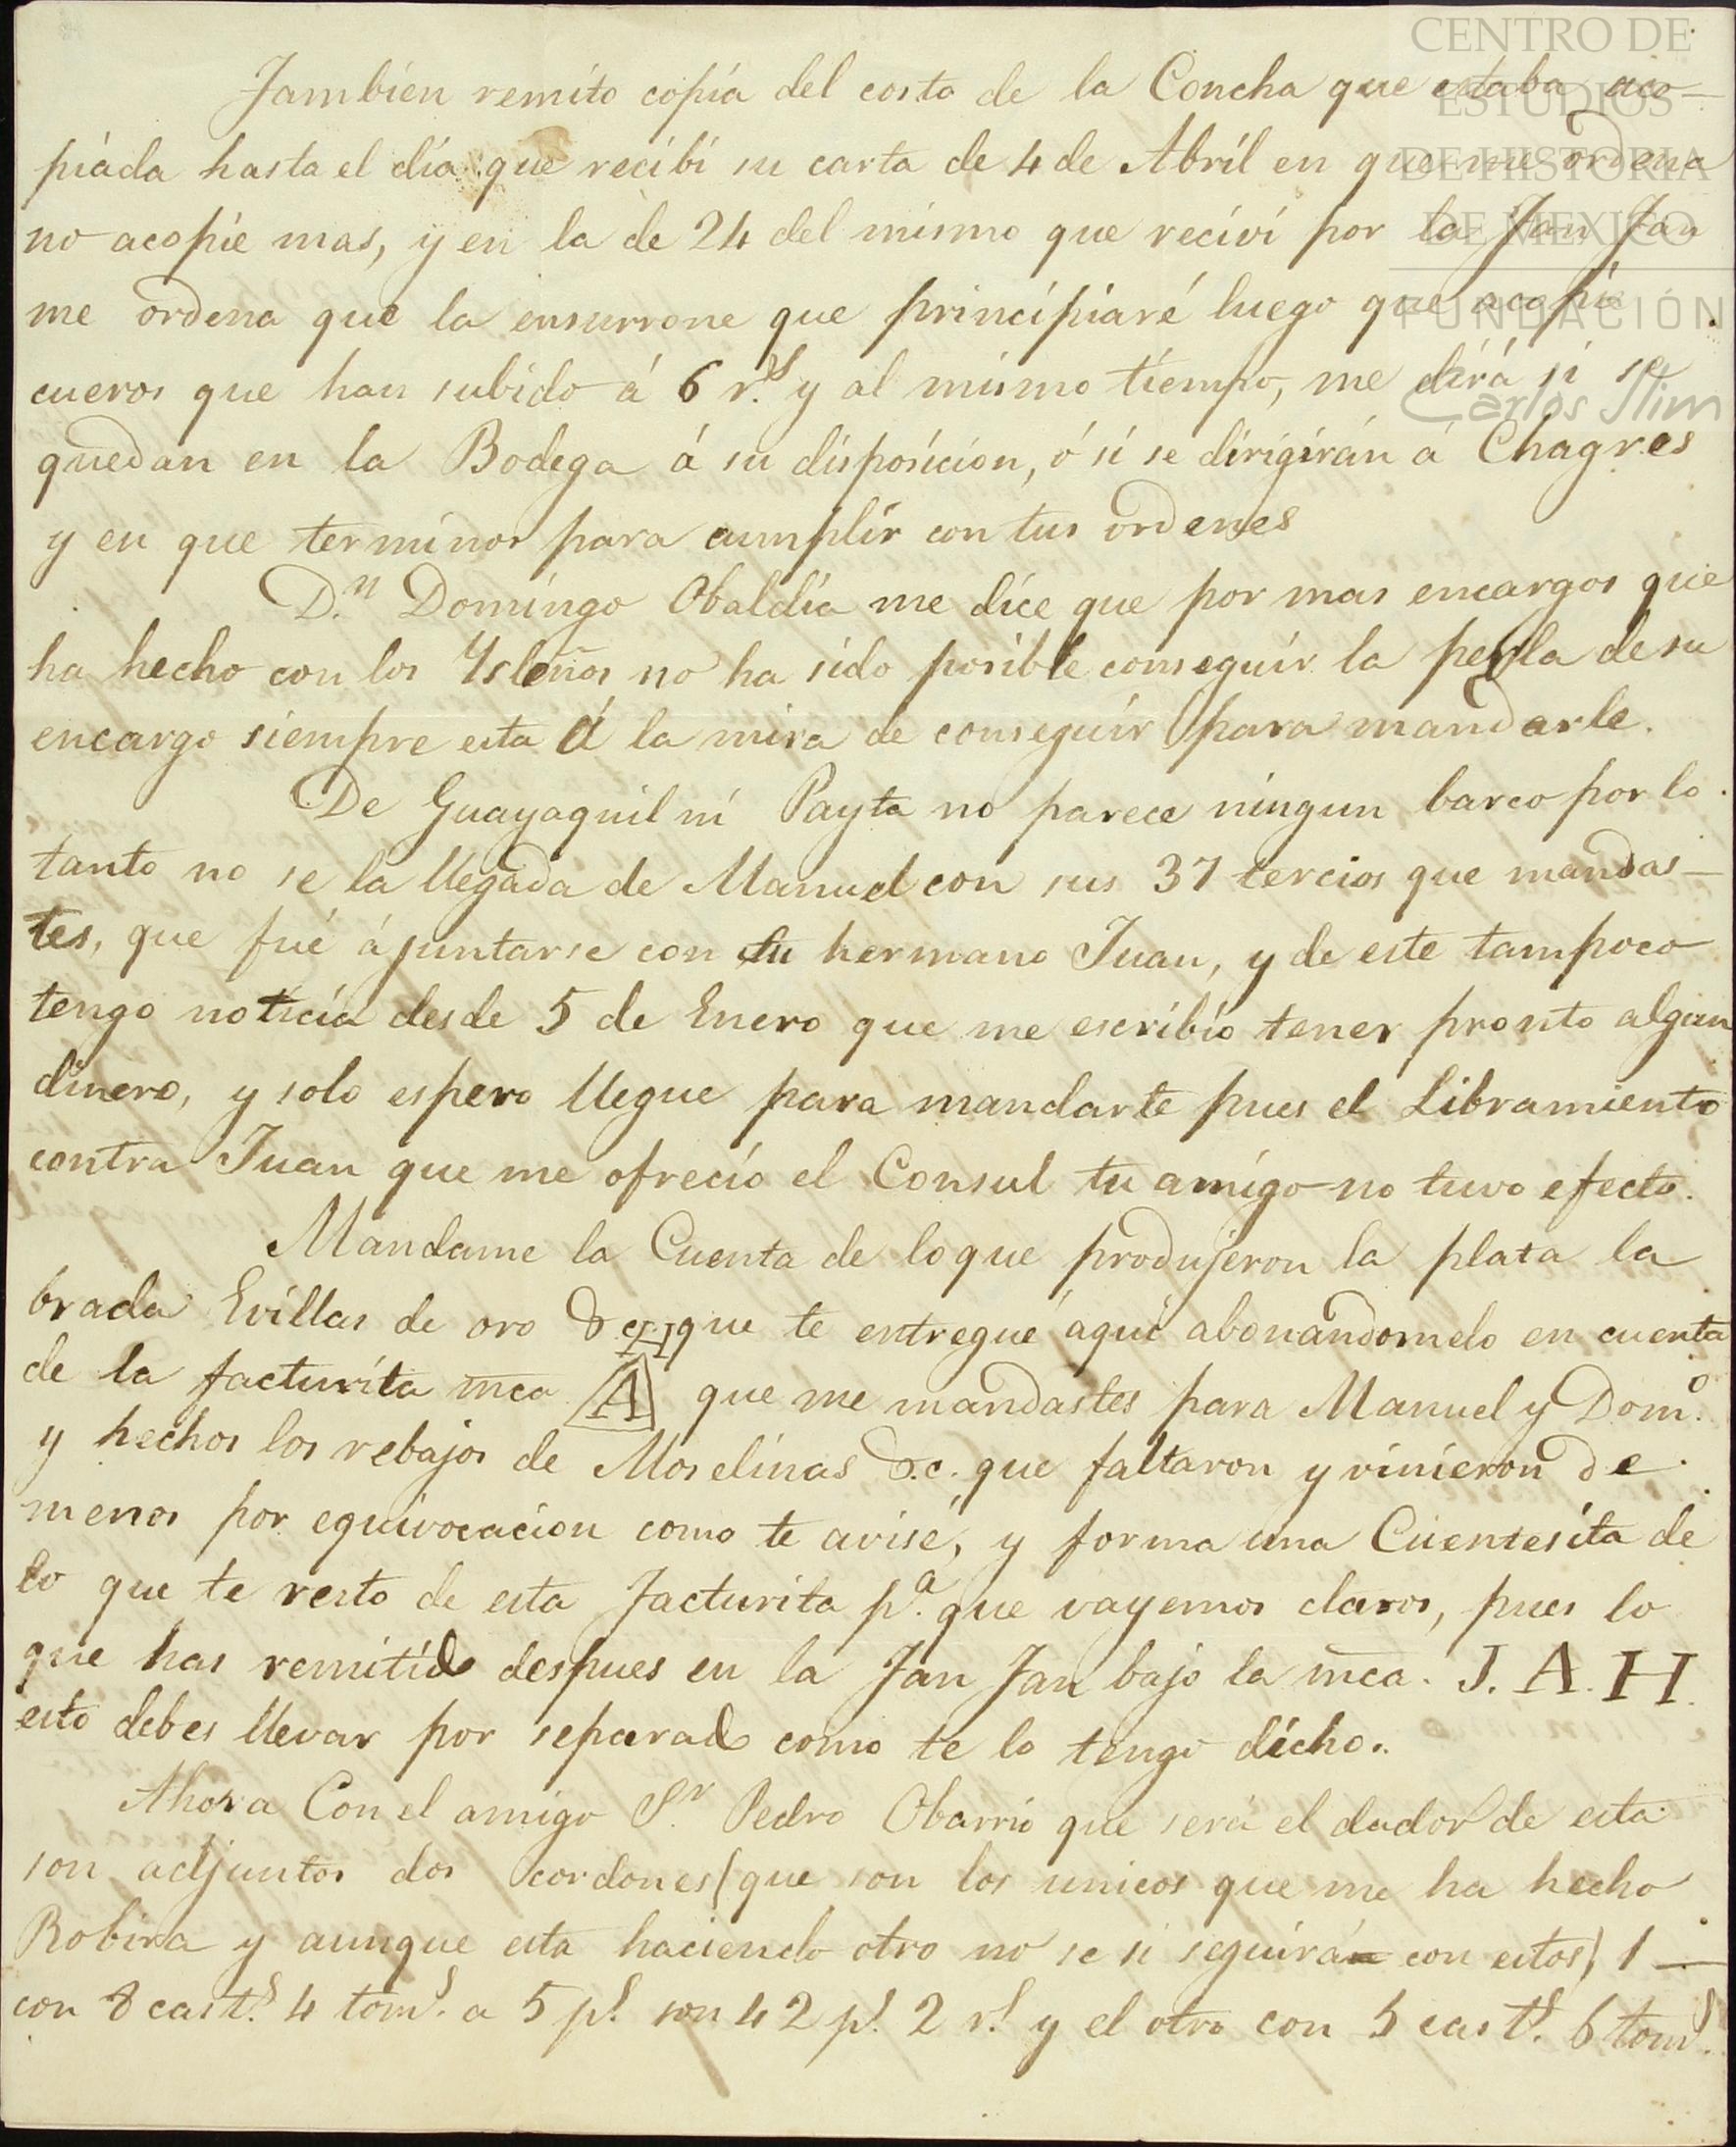 CENTRO DE
ESTUDIOS
DE HISTORIA
DE MEXICO
FUNDACIÓN
Carlos Slim
Tambien remito copia del costo de la Concha que estaba aco-
piada hasta el dia que recibi su carta de 4 de Abril en que me ordena
no acopie mas, y en la de 24 del mismo que recivi por la Jan Jan
me ordena que la ensurrone que principiaré luego que acopie
cueros que han subido á 6 r.s y al mismo tiempo, me dirá si se
quedan en la Bodega á su disposicion, ó si se dirigirán á Chagres
y en que terminos para cumplir con tus ordenes
D.n Domingo Obaldia me dice que por mas encargos que
ha hecho con los Ysleños no ha sido posible conseguir la perla de su
encargo siempre esta á la mira de conseguir para mandarle.
De Guayaquil ni Payta no parece ningun barco por lo
tanto no se la llegada de Manuel con sus 37 tercios que mandas-
tes, que fué á juntarse con tu hermano Juan, y de este tampoco
tengo noticia desde 5 de Enero que me escribio tener pronto algun
dinero, y solo espero llegue para mandarte pues el Libramiento
contra Juan que me ofrecio el Consul tu amigo no tuvo efecto.
Mandame la Cuenta de lo que produjeron la plata la
brada Evillas de oro &c. que te entregue aqui abonandomelo en cuenta
de la facturita mca H A que me mandastes para Manuel y Dom.o
y hechos los rebajos de Moselinas &.c. que faltaron y vinieron de
menos por equivocacion como te avisé, y forma una Cuentesita de
lo que te resto de esta facturita p.a que vayemos claros, pues lo
que has remitido despues en la Jan Jan bajo la mca. J. A. H.
esto debes llevar por separado como te lo tengo dicho.
Ahora Con el amigo S.r Pedro Obarrio que será el dador de esta
son adjuntos dos cordones (que son los unicos que me ha hecho
Robira y aunque esta haciendo otro no se si seguirá con estos) 1 —
con 8 cast.s 4 tom.s a 5 p.s son 42 p.s 2 r.s y el otro con 5 cast.s 6 tom.s